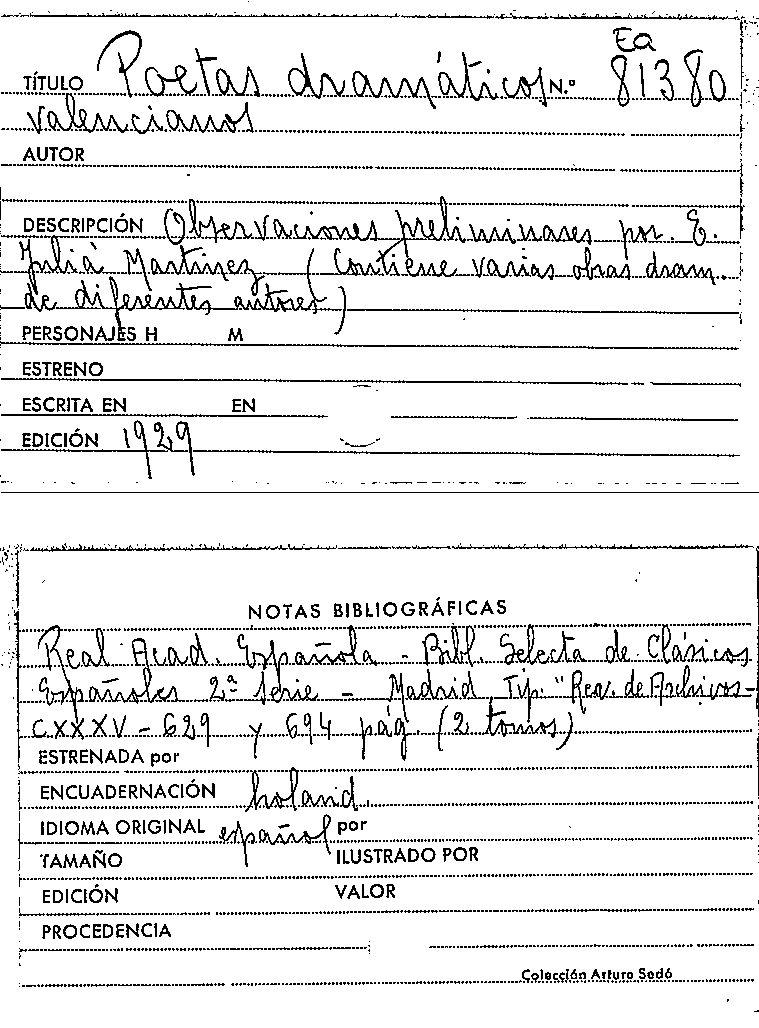 Ea
TÍTULO Poetas dramáticos N.º 81380
valencianos
AUTOR
DESCRIPCIÓN Observaciones preliminares por E.
Juliá Martínez (Contiene varias obras dram.
de diferentes autores)
PERSONAJES H M
ESTRENO
ESCRITA EN EN
EDICIÓN 1929
NOTAS BIBLIOGRÁFICAS
Real Acad. Española - Bibl. Selecta de Clásicos
Españoles 2ª Serie - Madrid Tip. "Rev. de Archivos-
CXXXV - 629 y 694 pág. (2 tomos)
ESTRENADA por
ENCUADERNACIÓN holand.
IDIOMA ORIGINAL español por
TAMAÑO ILUSTRADO POR
EDICIÓN VALOR
PROCEDENCIA
Colección Arturo Sedó